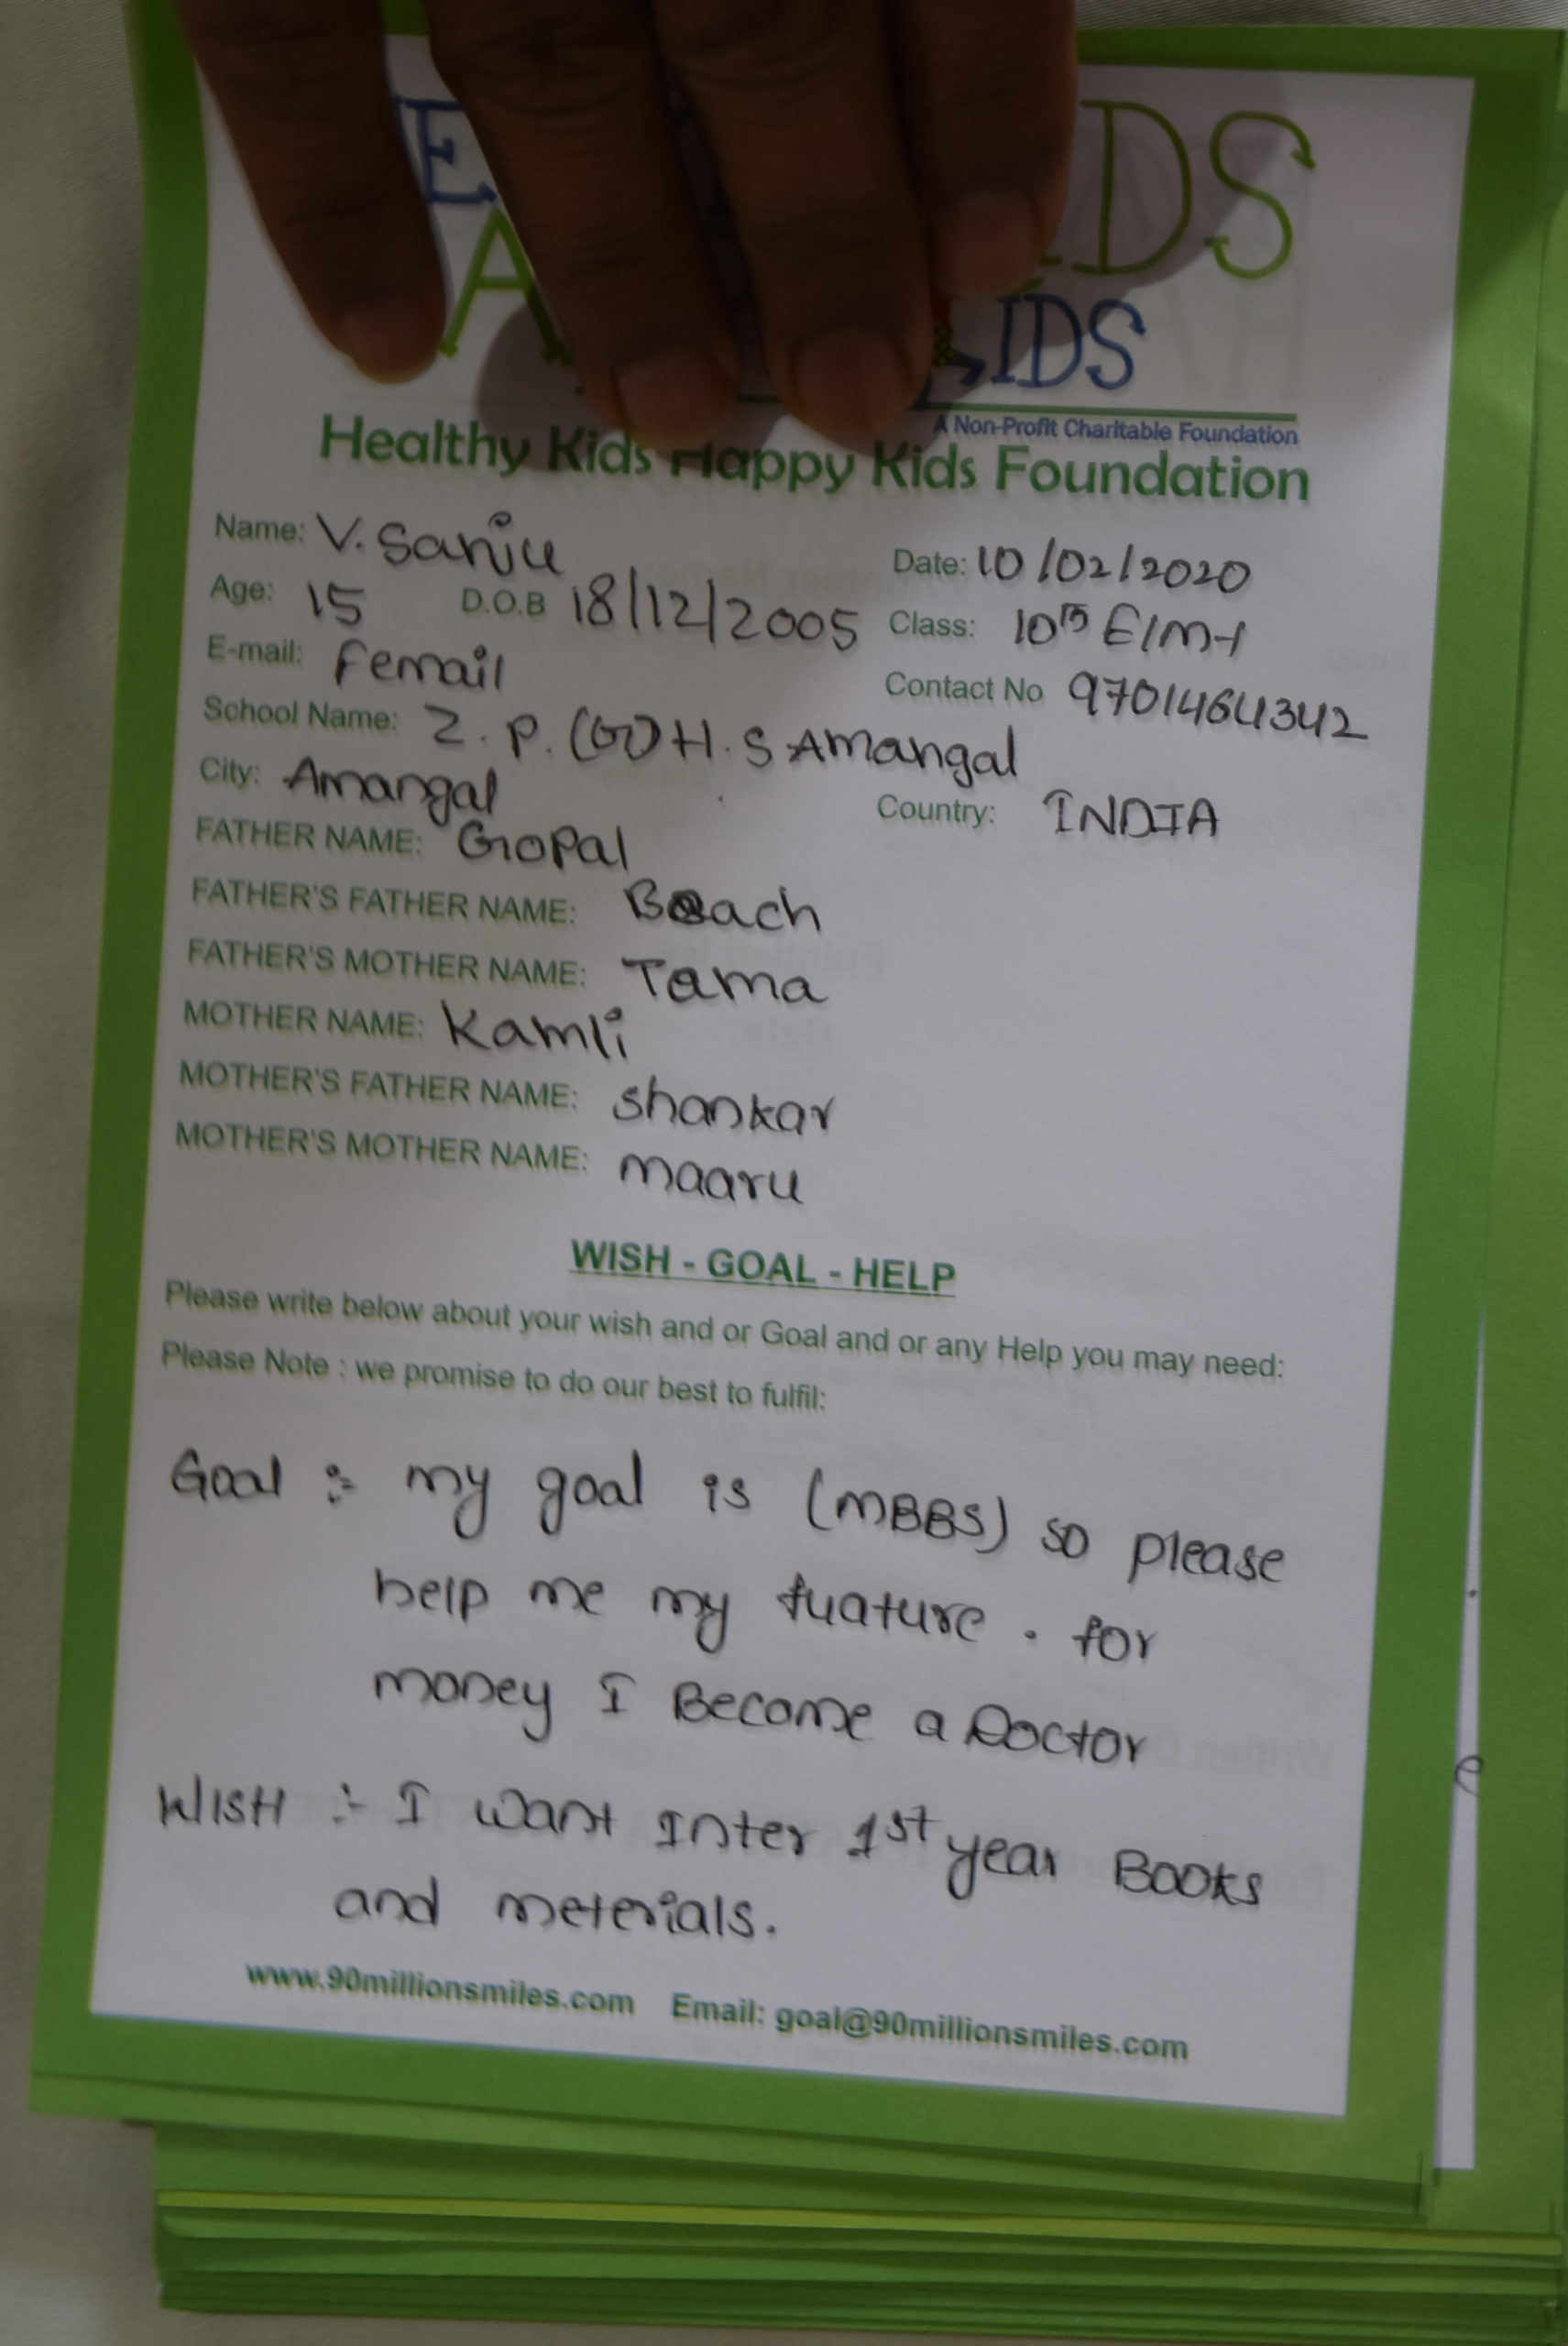 E DS
A IDS
A Non-Profit Charitable Foundation
Healthy Kids Happy Kids Foundation
Name: V. Sanju Date: 10/02/2020
Age: 15 D.O.B 18/12/2005 Class: 10th E/M-1
E-mail: Femail Contact No 9701464342
School Name: Z.P.(G)H.S Amangal
City: Amangal Country: INDIA
FATHER NAME: Gopal
FATHER'S FATHER NAME: Baach
FATHER'S MOTHER NAME: Tama
MOTHER NAME: Kamli
MOTHER'S FATHER NAME: shankar
MOTHER'S MOTHER NAME: maaru
WISH - GOAL - HELP
Please write below about your wish and or Goal and or any Help you may need:
Please Note : we promise to do our best to fulfil:
Goal :- my goal is (MBBS) so please
help me my fuature . for
money I Become a Doctor
WISH :- I want Inter 1st year Books
and meterials.
www.90millionsmiles.com Email: goal@90millionsmiles.com